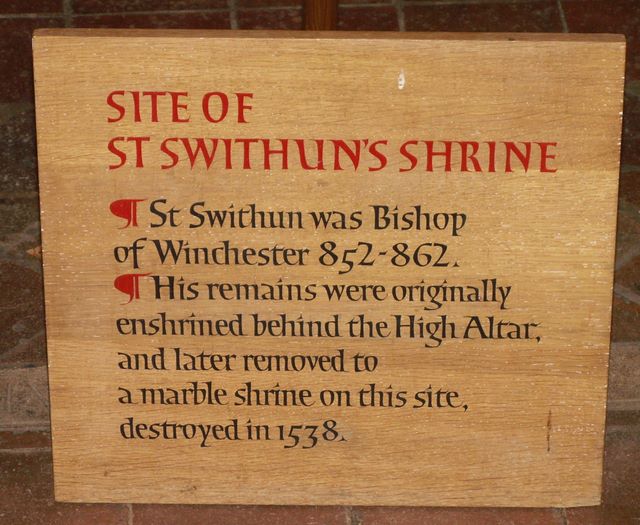 SITE OF
ST SWITHUN'S SHRINE
¶ St Swithun was Bishop
of Winchester 852-862.
¶ His remains were originally
enshrined behind the High Altar,
and later removed to
a marble shrine on this site,
destroyed in 1538.